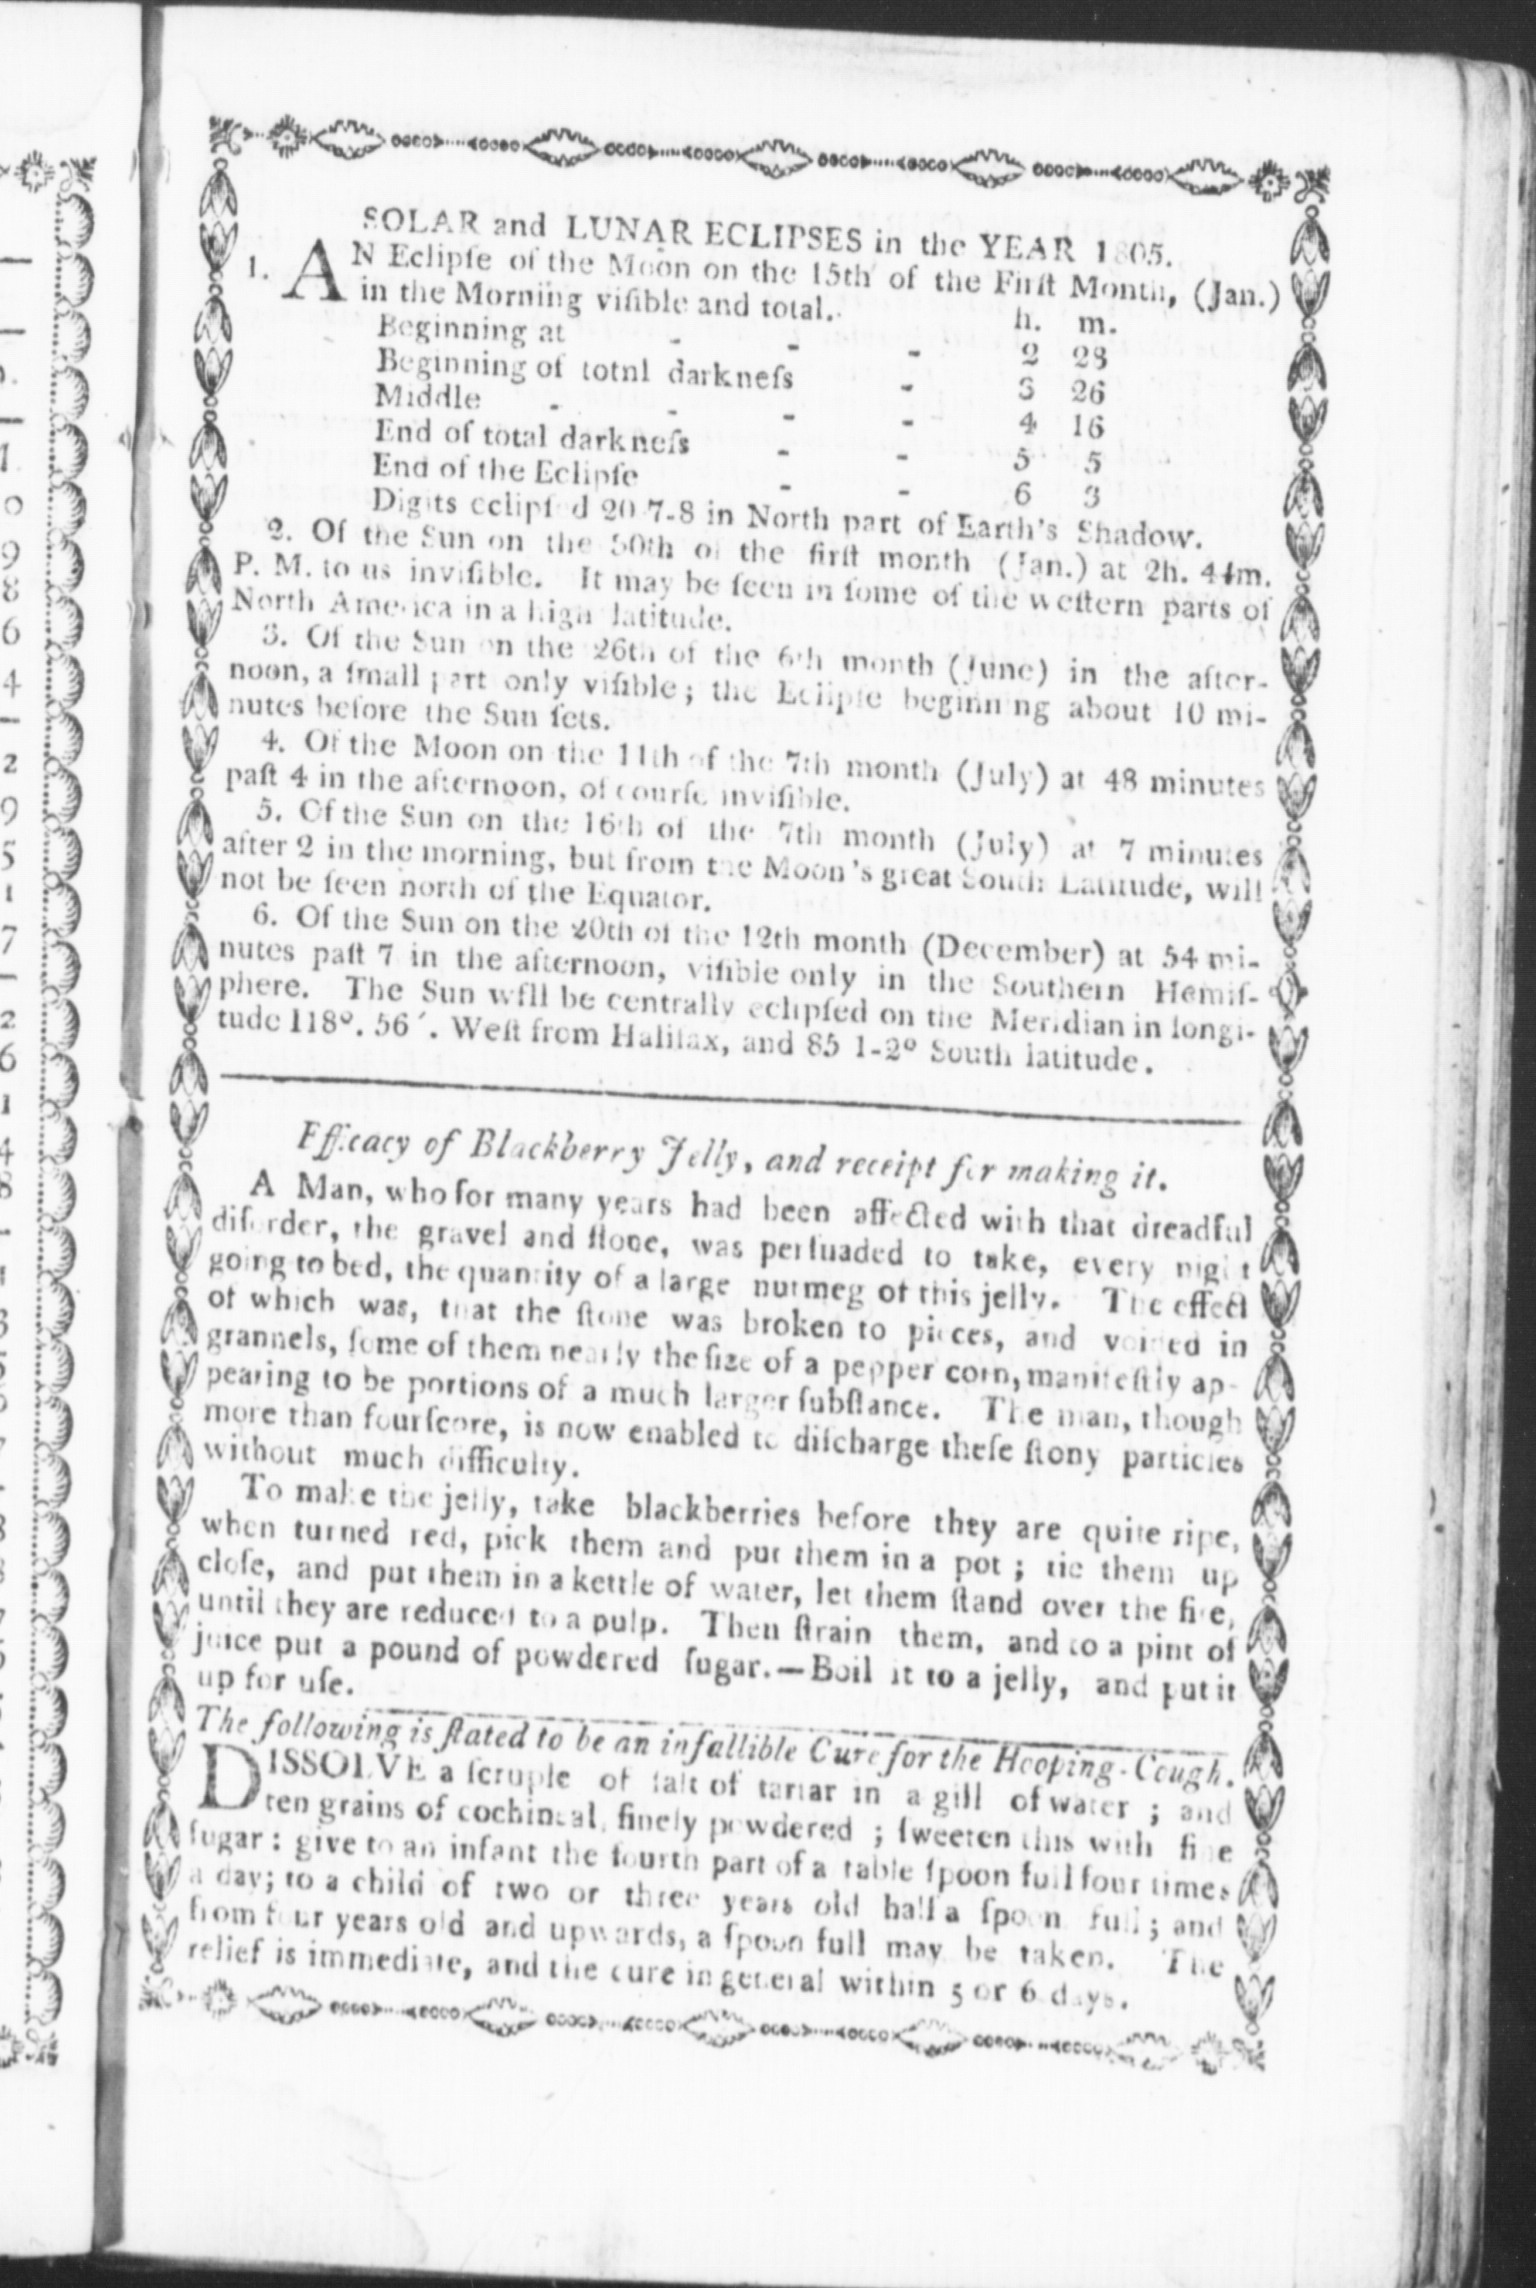 SOLAR and LUNAR ECLIPSES in the YEAR 1805.
1. AN Eclipſe of the Moon on the 15th of the Firſt Month, (Jan.)
in the Morning viſible and total. h. m.
Beginning at - - - 2 28
Beginning of totnl darkneſs - 3 26
Middle - - - - 4 16
End of total darkneſs - - 5 5
End of the Eclipſe - - 6 3
Digits eclipſed 20 7-8 in North part of Earth's Shadow.
2. Of the Sun on the 30th of the firſt month (Jan.) at 2h. 44m.
P. M. to us inviſible. It may be ſeen in ſome of the weſtern parts of
North America in a high latitude.
3. Of the Sun on the 26th of the 6th month (June) in the after-
noon, a ſmall part only viſible; the Eclipſe beginning about 10 mi-
nutes before the Sun ſets.
4. Of the Moon on the 11th of the 7th month (July) at 48 minutes
paſt 4 in the afternoon, of courſe inviſible.
5. Of the Sun on the 16th of the 7th month (July) at 7 minutes
after 2 in the morning, but from the Moon's great South Latitude, will
not be ſeen north of the Equator.
6. Of the Sun on the 20th of the 12th month (December) at 54 mi-
nutes paſt 7 in the afternoon, viſible only in the Southern Hemiſ-
phere. The Sun wfll be centrally eclipſed on the Meridian in longi-
tude 118°. 56´. Weſt from Halifax, and 85 1-2° South latitude.
Efficacy of Blackberry Jelly, and receipt for making it.
A Man, who for many years had been affected with that dreadful
diſorder, the gravel and ſtone, was perſuaded to take, every night
going to bed, the quantity of a large nutmeg of this jelly. The effect
of which was, that the ſtone was broken to pieces, and voided in
grannels, ſome of them nearly the ſize of a pepper corn, manifeſtly ap-
pearing to be portions of a much larger ſubſtance. The man, though
more than fourſcore, is now enabled to diſcharge theſe ſtony particles
without much difficulty.
To make the jelly, take blackberries before they are quite ripe,
when turned red, pick them and put them in a pot; tie them up
cloſe, and put them in a kettle of water, let them ſtand over the fire,
until they are reduced to a pulp. Then ſtrain them, and to a pint of
juice put a pound of powdered ſugar.—Boil it to a jelly, and put it
up for uſe.
The following is ſtated to be an infallible Cure for the Hooping-Cough.
DISSOLVE a ſcruple of ſalt of tartar in a gill of water; and
ten grains of cochineal, finely powdered; ſweeten this with fine
ſugar: give to an infant the fourth part of a table ſpoon full four times
a day; to a child of two or three years old half a ſpoon full; and
from four years old and upwards, a ſpoon full may be taken. The
relief is immediate, and the cure in general within 5 or 6 days.